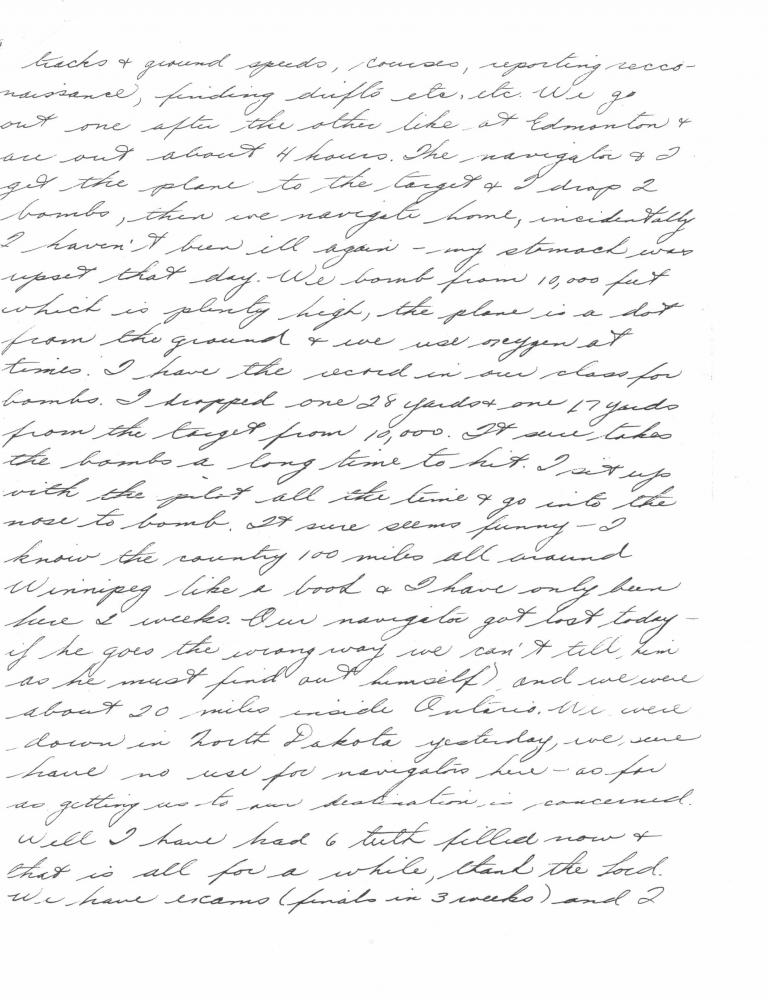 tracks & ground speeds, courses, reporting recco-
naissance, finding drifts etc. etc. We go
out one after the other like at Edmonton &
are out about 4 hours. The navigator & I
get the plane to the target & I drop 2
bombs, then we navigate home, incidentally
I haven't been ill again - my stomach was
upset that day. We bomb from 10,000 feet
which is plenty high, the plane is a dot
from the ground & we use oxygen at
times. I have the record in our class for
bombs. I dropped one 28 yards & one 17 yards
from the target from 10,000. It sure takes
the bombs a long time to hit. I sit up
with the pilot all the time & go into the
nose to bomb. It sure seems funny - I
know the country 100 miles all around
Winnipeg like a book & I have only been
here 2 weeks. Our navigator got lost today -
if he goes the wrong way we can't tell him
as he must find out himself) and we were
about 20 miles inside Ontario. We were
down in North Dakota yesterday, we sure
have no use for navigators here - as far
as getting us to our destination is concerned.
Well I have had 6 teeth filled now &
that is all for a while, thank the Lord.
We have exams (finals in 3 weeks) and I